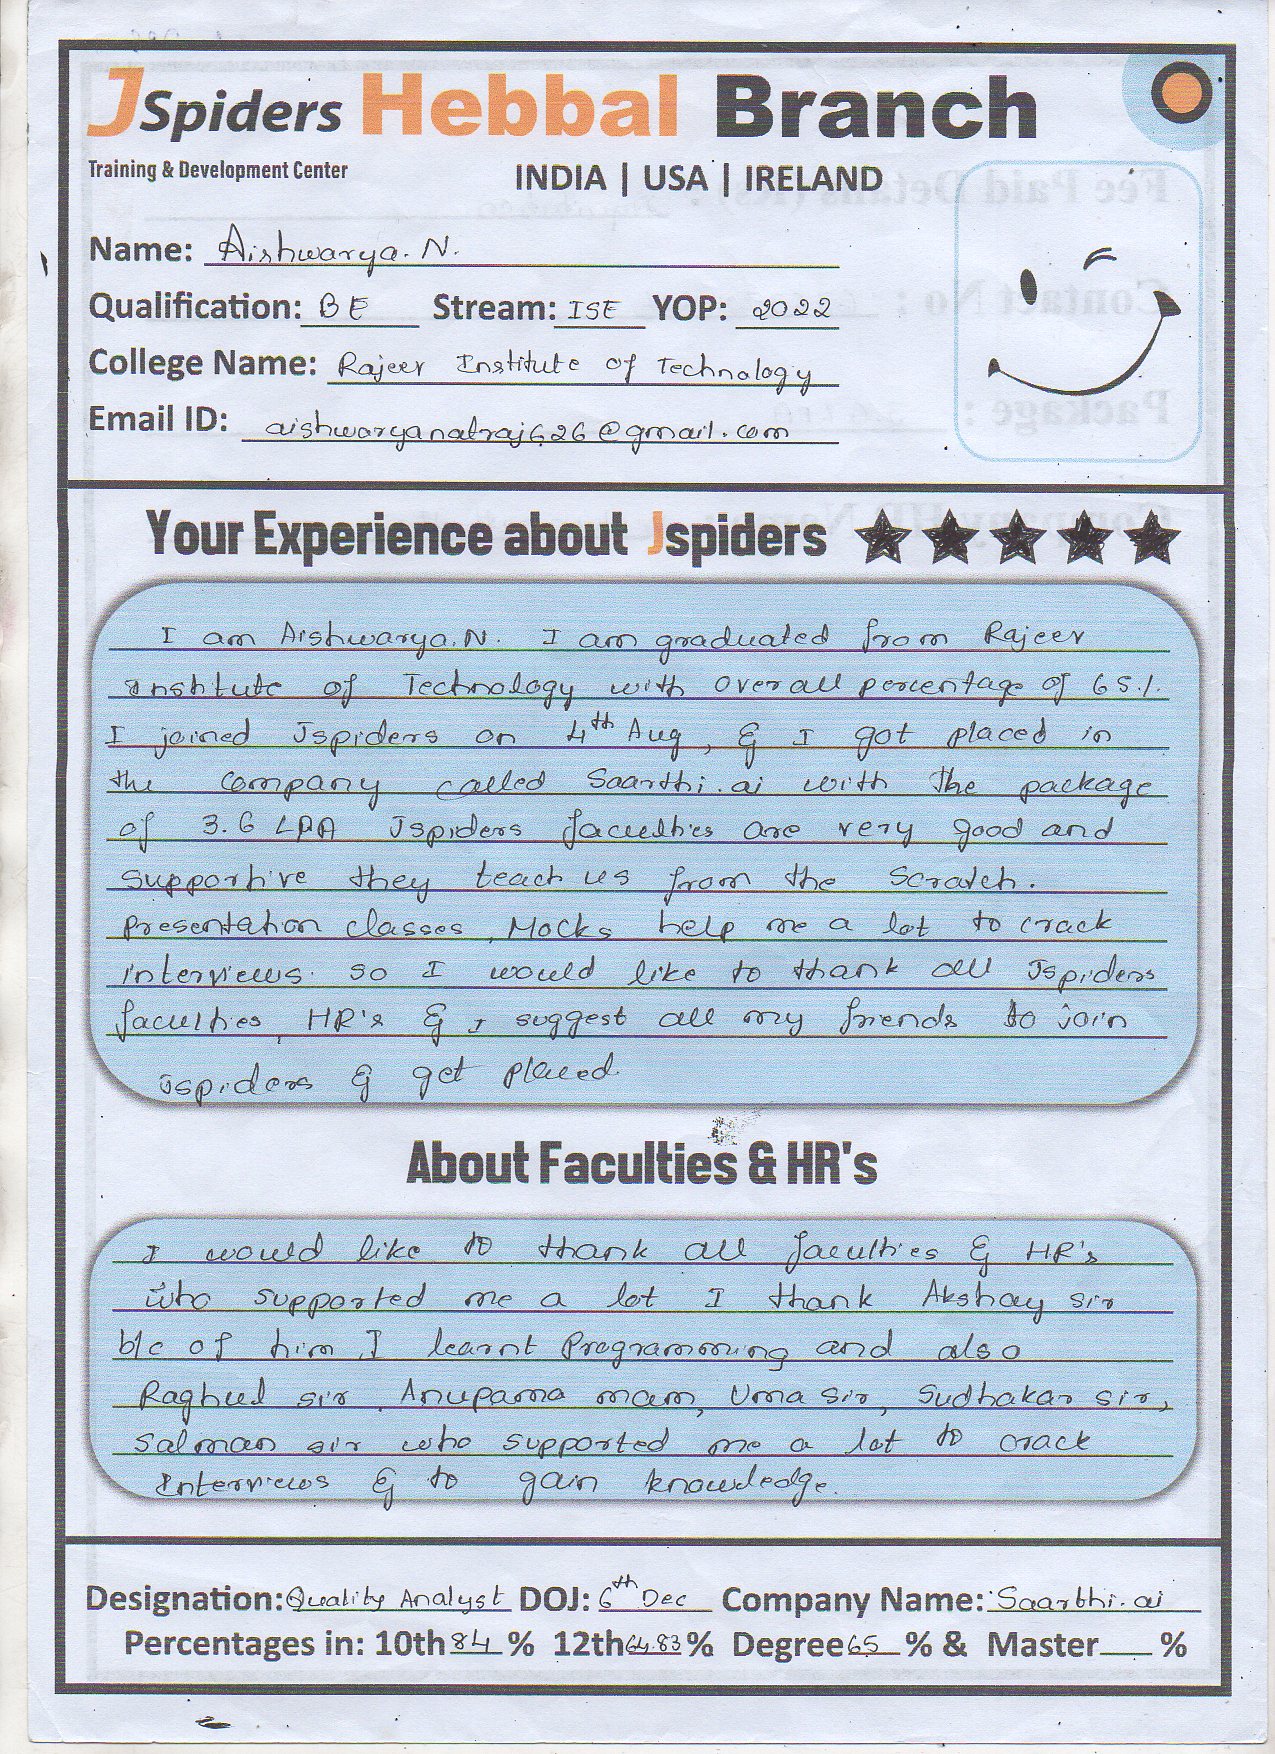 JSpiders Hebbal Branch
Training & Development Center
INDIA | USA | IRELAND
Name: Aishwarya. N.
Qualification: BE Stream: ISE YOP: 2022
College Name: Rajeev Institute of Technology
Email ID: aishwaryanatraj626@gmail.com
Your Experience about Jspiders
I am Aishwarya.N. I am graduated from Rajeev
Institute of Technology with overall percentage of 65%.
I joined Jspiders on 4th Aug, & I got placed in
the company called Saarthi.ai with the package
of 3.6 LPA Jspiders faculties are very good and
supportive they teach us from the scratch.
Presentation classes, Mocks help me a lot to crack
interviews. so I would like to thank all Jspiders
faculties, HR's & I suggest all my friends to join
Jspiders & get placed.
About Faculties & HR's
I would like to thank all faculties & HR's
who supported me a lot I thank Akshay sir
b/c of him I learnt Programming and also
Raghul sir, Anupama mam, Uma sir, Sudhakar sir,
Salman sir who supported me a lot to crack
Interviews & to gain knowledge.
Designation: Quality Analyst DOJ: 6th Dec Company Name: Saarthi.ai
Percentages in: 10th 84 % 12th 64.83 % Degree 65 % & Master %